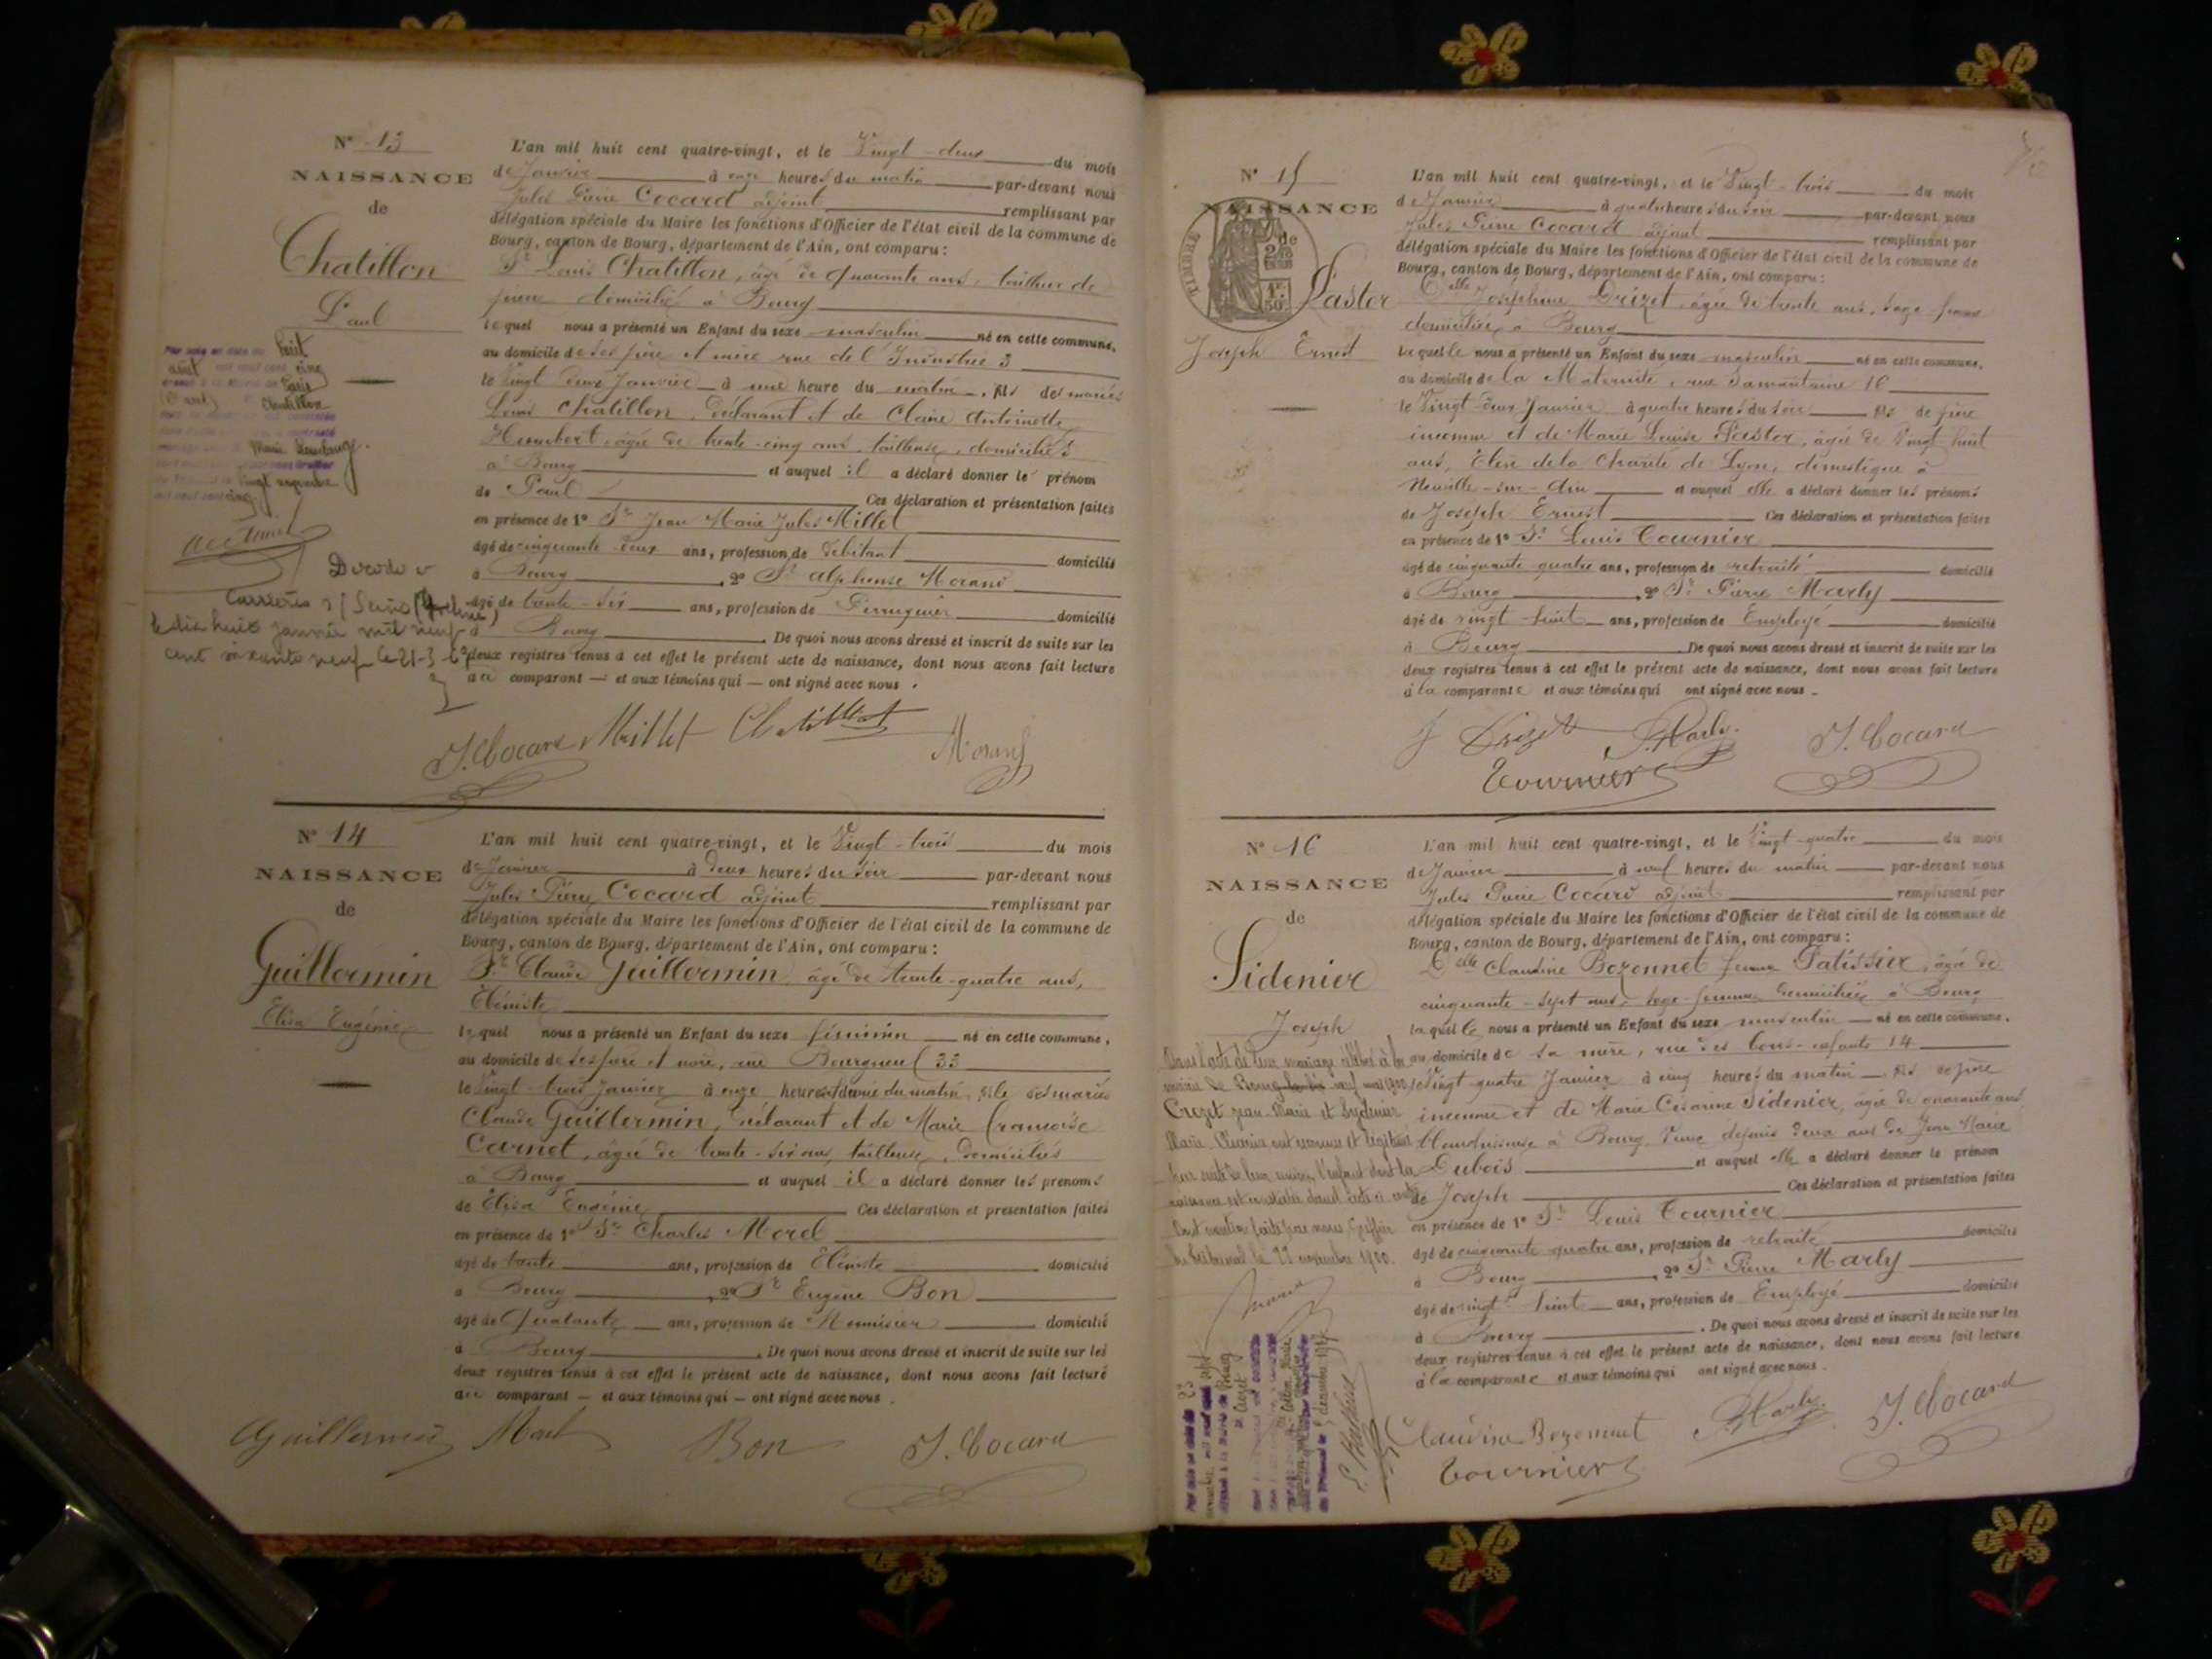 N° 13
NAISSANCE
de
Chatillon
Paul
L'an mil huit cent quatre-vingt, et le Vingt-deux du mois
de Janvier à onze heures du matin par-devant nous
Jules Pierre Cocard adjoint remplissant par
délégation spéciale du Maire les fonctions d'Officier de l'état civil de la commune de
Bourg, canton de Bourg, département de l'Ain, ont comparu :
Sr Louis Chatillon, âgé de quarante ans, tailleur de
pierre domicilié à Bourg
lequel nous a présenté un Enfant du sexe masculin né en cette commune,
au domicile de ses père et mère rue de l'Industrie 3
le Vingt deux Janvier à une heure du matin, fils des mariés
Louis Chatillon, déclarant et de Claire Antoinette
Humbert, âgée de trente-cinq ans, tailleuse, domiciliés
à Bourg et auquel il a déclaré donner le prénom
de Paul Ces déclaration et présentation faites
en présence de 1° Sr Jean Marie Jules Millet
âgé de cinquante deux ans, profession de débitant domicilié
à Bourg, 2° Sr Alphonse Morand
âgé de trente-six ans, profession de Perruquier domicilié
à Bourg. De quoi nous avons dressé et inscrit de suite sur les
deux registres tenus à cet effet le présent acte de naissance, dont nous avons fait lecture
au comparant — et aux témoins qui — ont signé avec nous.
huit
août cinq
Paris
Chatillon
Marie
vingt novembre
cinq
Décédé à
Carrières s/Seine
le dix huit janvier mil neuf
cent soixante neuf
J. Cocard Millet Chatillon
Morand
N° 14
NAISSANCE
de
Guillermin
Elisa Eugénie
L'an mil huit cent quatre-vingt, et le Vingt-trois du mois
de Janvier à deux heures du soir par-devant nous
Jules Pierre Cocard adjoint remplissant par
délégation spéciale du Maire les fonctions d'Officier de l'état civil de la commune de
Bourg, canton de Bourg, département de l'Ain, ont comparu :
Sr Claude Guillermin, âgé de trente-quatre ans,
Ebéniste
lequel nous a présenté un Enfant du sexe féminin né en cette commune,
au domicile de ses père et mère, rue Bourgneuf 33
le Vingt-trois Janvier à onze heures et demie du matin, fille des mariés
Claude Guillermin, déclarant et de Marie Françoise
Carnet, âgée de trente-six ans, tailleuse, domiciliés
à Bourg et auquel il a déclaré donner les prénoms
de Elisa Eugénie Ces déclaration et présentation faites
en présence de 1° Sr Charles Morel
âgé de trente ans, profession de Ebéniste domicilié
à Bourg, 2° Sr Eugène Bon
âgé de Quarante ans, profession de Menuisier domicilié
à Bourg. De quoi nous avons dressé et inscrit de suite sur les
deux registres tenus à cet effet le présent acte de naissance, dont nous avons fait lecture
au comparant — et aux témoins qui — ont signé avec nous.
Guillermin Morel Bon J. Cocard
N° 15
NAISSANCE
de
TIMBRE
Pastor
Joseph Ernest
L'an mil huit cent quatre-vingt, et le Vingt-trois du mois
de Janvier à quatre heures du soir par-devant nous
Jules Pierre Cocard adjoint remplissant par
délégation spéciale du Maire les fonctions d'Officier de l'état civil de la commune de
Bourg, canton de Bourg, département de l'Ain, ont comparu :
Delle Joséphine Drizet, âgée de trente ans, sage-femme
domiciliée à Bourg
laquelle nous a présenté un Enfant du sexe masculin né en cette commune,
au domicile de la Maternité, rue Samaritaine 16
le Vingt-deux Janvier à quatre heures du soir fils de père
inconnu et de Marie Louise Pastor, âgée de vingt huit
ans, Elève de la Charité de Lyon, domestique à
Neuville-sur-Ain et auquel elle a déclaré donner les prénoms
de Joseph Ernest Ces déclaration et présentation faites
en présence de 1° Sr Louis Tournier
âgé de cinquante quatre ans, profession de retraité domicilié
à Bourg, 2° Sr Pierre Marly
âgé de vingt-huit ans, profession de Employé domicilié
à Bourg. De quoi nous avons dressé et inscrit de suite sur les
deux registres tenus à cet effet le présent acte de naissance, dont nous avons fait lecture
à la comparante et aux témoins qui ont signé avec nous.
J Drizet P. Marly J. Cocard
Tournier
N° 16
NAISSANCE
de
Sidenier
Joseph
L'an mil huit cent quatre-vingt, et le Vingt-quatre du mois
de Janvier à neuf heures du matin par-devant nous
Jules Pierre Cocard adjoint remplissant par
délégation spéciale du Maire les fonctions d'Officier de l'état civil de la commune de
Bourg, canton de Bourg, département de l'Ain, ont comparu :
Delle Claudine Bozonnet femme Patissier, âgée de
cinquante-sept ans, sage-femme domiciliée à Bourg
laquelle nous a présenté un Enfant du sexe masculin né en cette commune,
au domicile de sa mère, rue des bons-enfants 14
le Vingt quatre Janvier à cinq heures du matin fils de père
inconnu et de Marie Césarine Sidenier, âgée de quarante ans
blanchisseuse à Bourg, Veuve depuis deux ans de Jean Marie
Dubois et auquel elle a déclaré donner le prénom
de Joseph Ces déclaration et présentation faites
en présence de 1° Sr Louis Tournier
âgé de cinquante quatre ans, profession de retraité domicilié
à Bourg, 2° Sr Pierre Marly
âgé de vingt-huit ans, profession de Employé domicilié
à Bourg. De quoi nous avons dressé et inscrit de suite sur les
deux registres tenus à cet effet le présent acte de naissance, dont nous avons fait lecture
à la comparante et aux témoins qui ont signé avec nous.
Dans l'acte de leur mariage célébré à la
mairie de Bourg
Crozet Jean-Marie et Sydenier
Marie ont reconnu et légitimé
par suite de leur union, l'enfant dont la
naissance est constatée dans l'acte ci contre
Dont mention faite par nous, Greffier
du tribunal le 22 novembre 1900.
Claudine Bozonnet P. Marly J. Cocard
Tournier